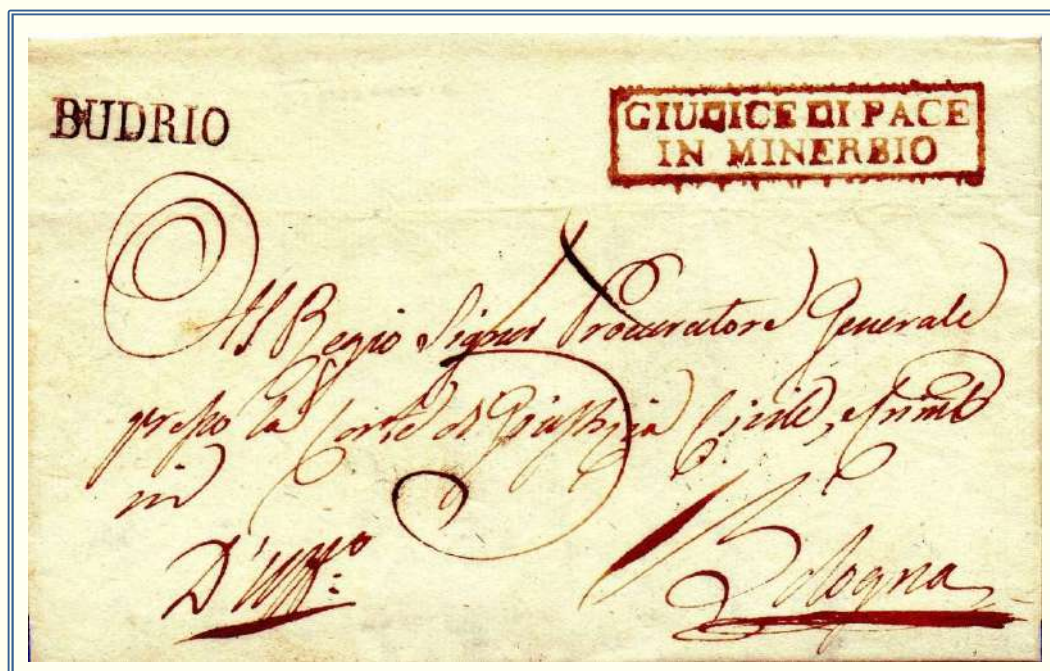 BUDRIO
GIUDICE DI PACE
IN MINERBIO
Al Regio Signor Procuratore Generale
presso la Corte di Giustizia Civile, e Crim.le
in
D'Uff.o
Bologna